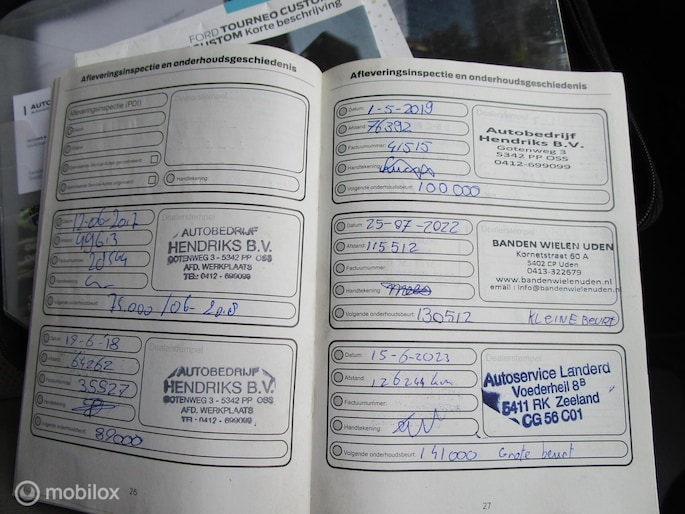 FORD TOURNEO CUSTOM
CUSTOM Korte beschrijving
AUTO
Afleveringsinspectie en onderhoudsgeschiedenis
Afleveringsinspectie (PDI)
Handtekening:
Datum: 12-06-2017
Afstand: 49613
AUTOBEDRIJF
HENDRIKS B.V.
GOTENWEG 3 - 5342 PP OSS
AFD. WERKPLAATS
TEL: 0412 - 699099
Volgende onderhoudsbeurt: 75.000 / 06-2018
Datum: 19-6-'18
Afstand: 64262
35527
AUTOBEDRIJF
HENDRIKS B.V.
GOTENWEG 3 - 5342 PP OSS
AFD. WERKPLAATS
TEL: 0412 - 699099
Volgende onderhoudsbeurt:
26
Afleveringsinspectie en onderhoudsgeschiedenis
Datum: 1-5-2019
Afstand: 76392
Factuurnummer: 41515
Handtekening:
Autobedrijf
Hendriks B.V.
Gotenweg 3
5342 PP OSS
0412-699099
Volgende onderhoudsbeurt: 100000
Datum: 25-07-2022
Afstand: 115512
Factuurnummer:
Handtekening:
BANDEN WIELEN UDEN
Kornetstraat 60 A
5402 CP Uden
0413-322679
www.bandenwielenuden.nl
email : info@bandenwielenuden.n
Volgende onderhoudsbeurt: 130512 KLEINE BEURT
Datum: 15-6-2023
Afstand: 126244 km
Factuurnummer:
Handtekening:
Autoservice Landerd
Voederheil 8B
5411 RK Zeeland
CG 56 C01
Volgende onderhoudsbeurt: 141000 Grote beurt
27
mobilox